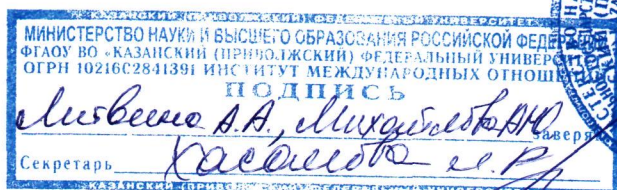 КАЗАНСКИЙ (ПРИВОЛЖСКИЙ) ФЕДЕРАЛЬНЫЙ УНИВЕРСИТЕТ
МИНИСТЕРСТВО НАУКИ И ВЫСШЕГО ОБРАЗОВАНИЯ РОССИЙСКОЙ ФЕДЕ
ФГАОУ ВО «КАЗАНСКИЙ (ПРИВОЛЖСКИЙ) ФЕДЕРАЛЬНЫЙ УНИВЕР
ОГРН 1021602841391 ИНСТИТУТ МЕЖДУНАРОДНЫХ ОТНОШ
ПОДПИСЬ
Литвина А.А, Михайлова А.Ю заверя
Секретарь Хасанова